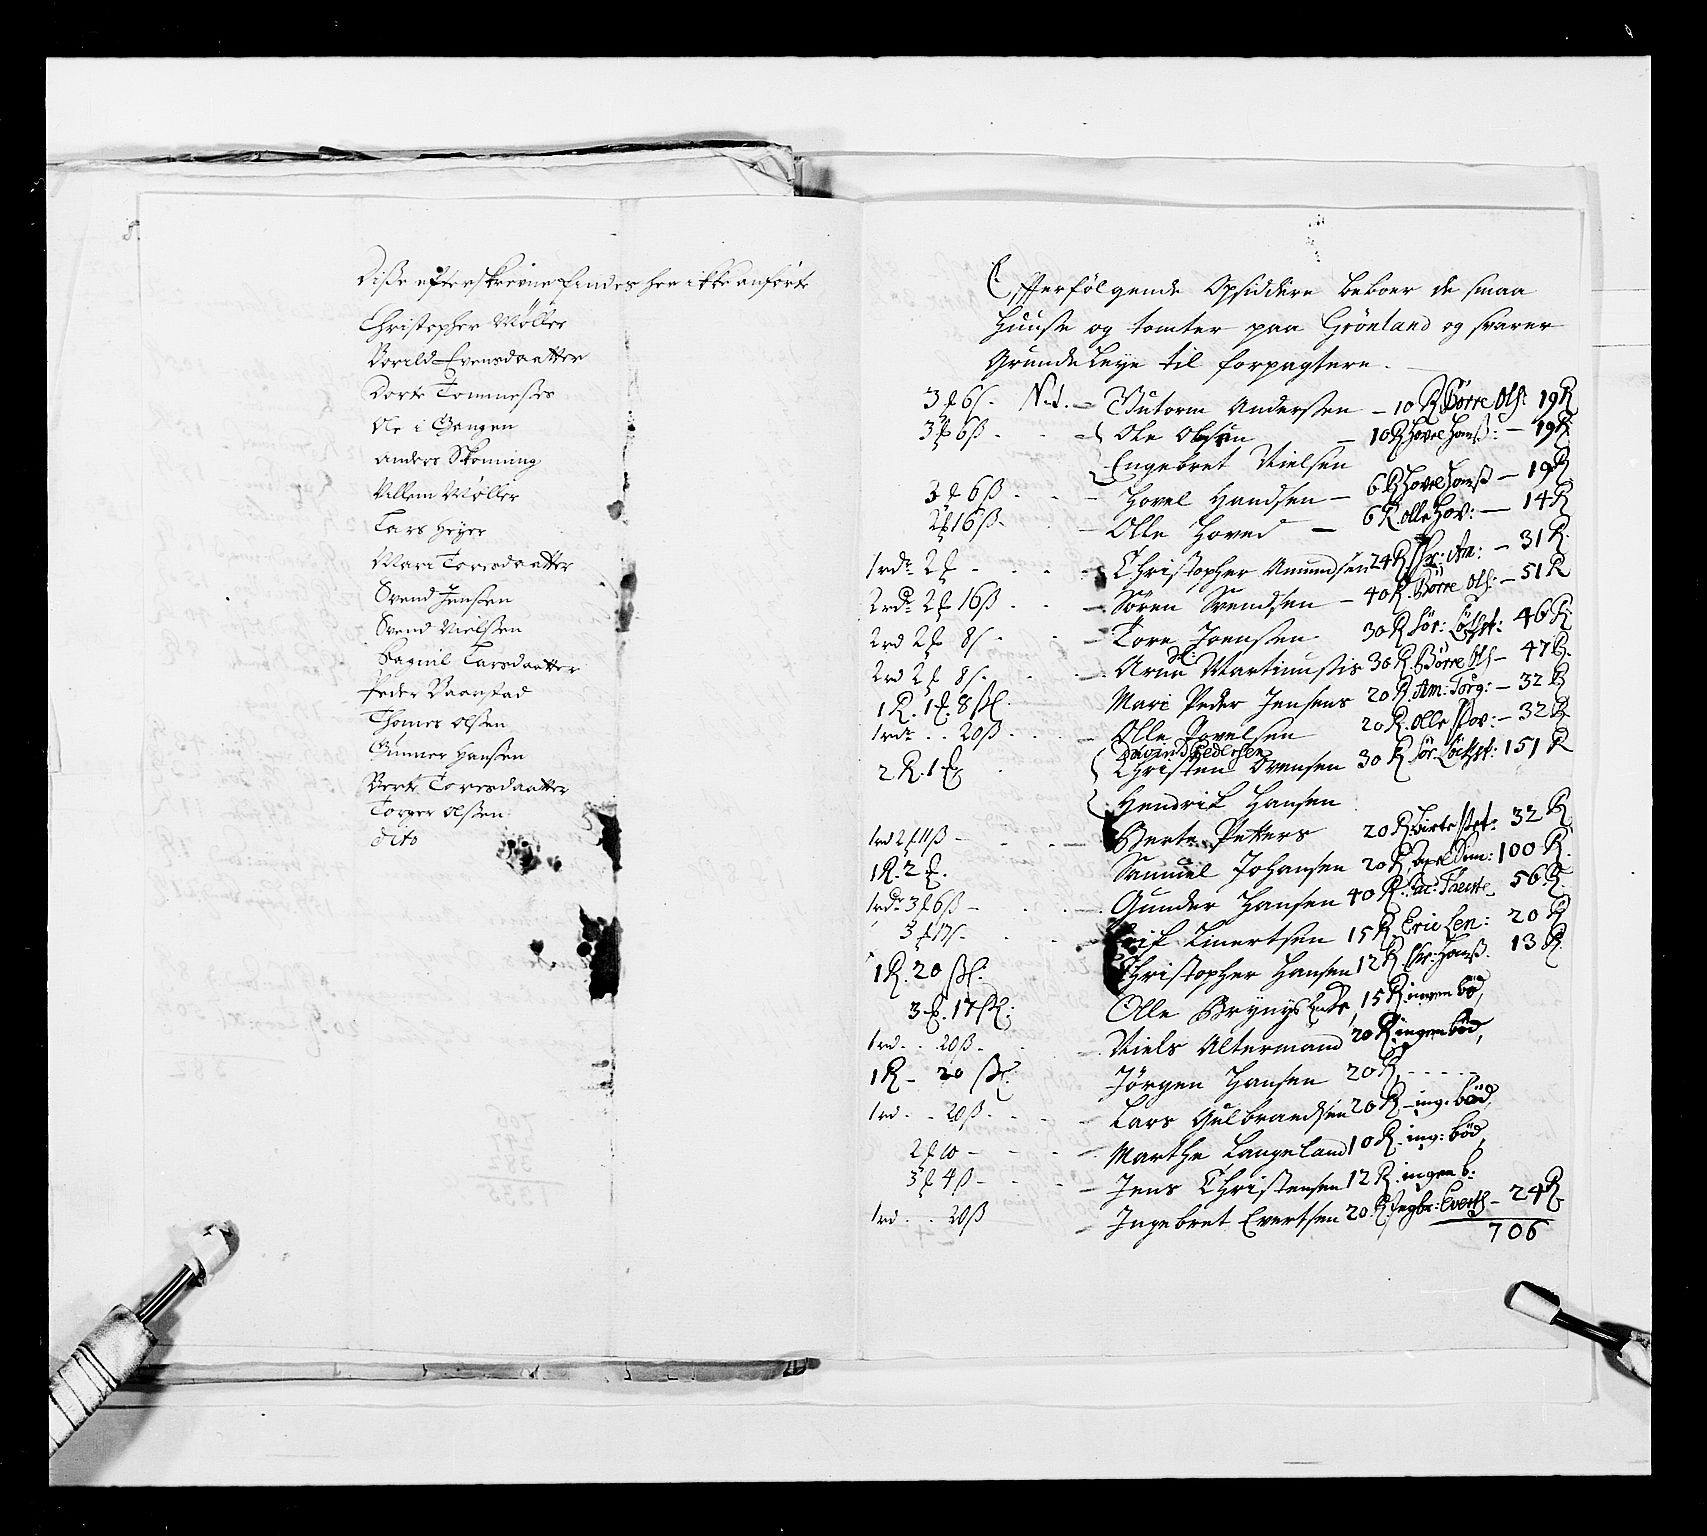 Disse efterskrevne findes her ikke anförte
Christopher Møller
Borild Evensdaatter
Dorte Tommeses
Ole i Gangen
Anders Skonning
Villem Møller
Lars Heyer
Mari Toresdaatter
Svend Jensen
Svend Nielssen
Ragnil Larsdaatter
Peder Baanstad
Thomes Olssen
Gunner Hansen
Berte Toresdaatter
Torger Olssen
dito
Efterfölgende Opsiddere beboer de smaa
Huuse og tomter paa Grönland og svarer
Grunde Leye til forpagtere.
3 ƶ 6 s. N.1. – Guttorm Andersen – 10 R Börre Ols: 19 R
3 ƶ 6 ß – Ole Olssen – 10 R Hovel Hanß: – 19 R
Engebret Nielsen
3 ƶ 6 ß – Hovel Handsen – 6 R Hovel Hanß – 19 R
2 ƶ 16 ß – Olle Hoved – 6 R Olle Hov: – 14 R
1 rdr 2 ƶ – Christopher Amundsen 24 R Chr: Am: – 31 R.
2 rdr 2 ƶ 16 ß – Sören Svendsen – 40 R. Börre Ols: – 51 R
2 rd 2 ƶ 8 s – Tore Joensen 30 R Sör: 46 R
2 rd 2 ƶ 8 s. – Arne Martinussis 30 R. Börre Ols – 47 R.
1 R. 1 ƶ. 8 ßl. Mari Peder Jensens 20 R. Am: Törg: – 32 R
1 rdr . . 20 ß – Olle Povelsen 20 R. Olle Pov: – 32 R
2 R. 1 ƶ David Pedersen
Christen Svensen 30 R Sör. 151 R
Hendrik Hansen
1 rd 2 ƶ 11 ß – Berte Petters 20 R. Birte Pet: 32 R
1 R. 2 ƶ. Samuel Johansen 20 R. Sam: 100 R.
1 rdr 3 ƶ 6 ß – Gunder Hansen 40 R. 56 R.
3 ƶ 17 s. Erik Linertsen 15 R. Eric Len: 20 R
1 R. 20 ßl. Christopher Hansen 12 R Chr: Hanß. 13 R.
3 ƶ. 17 ßl: Olle Brynys Enke, 15 R ingen bö,
1 rd. . 20 ß – Niels Altermand 20 R ingen böd,
1 R – 20 ßl. Jörgen Hansen 20 R, - - - -
1 rd. . 20 ß. – Lars Gulbrandsen 20 R – ing. böd,
2 ƶ 10 – Marthe Langeland 10 R. ing: böd,
3 ƶ 4 ß – Jens Christensen 12 R. ingen b:
1 rd. . 20 ß – Ingebret Evertsen 20. R. Ingbr: Everts – 24 R
706